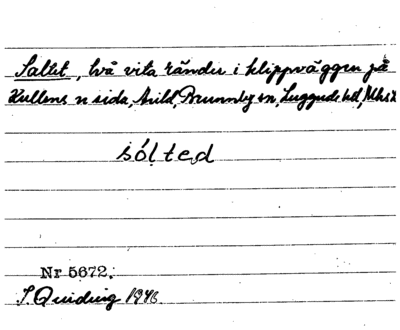 Saltet, två vita ränder i klippväggen på
Kullens n sida, Arild, Brunnby sn, Luggude hd, Mhs l.
sól ted
Nr 5672.
S. Quiding 1946